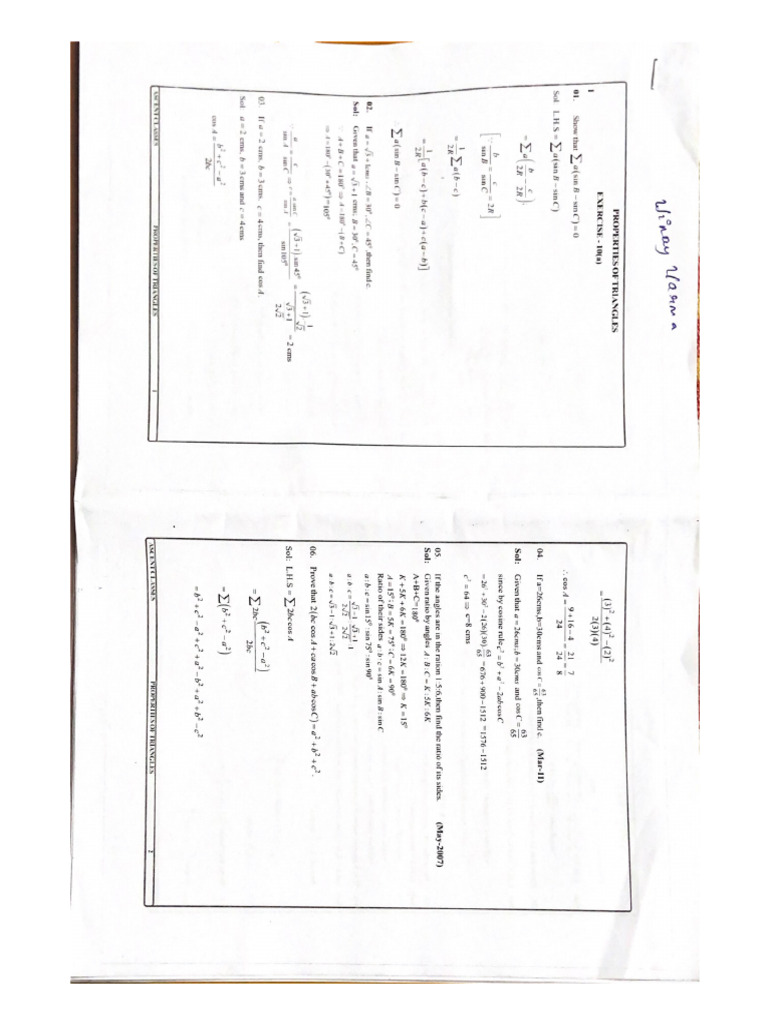 Vinay Varma
PROPERTIES OF TRIANGLES
EXERCISE - 10(a)
1
01. Show that ∑ a(sin B − sin C) = 0
Sol L.H.S = ∑ a(sin B − sin C)
= ∑ a( b/2R − c/2R ).
[ ∵ b/sin B = c/sin C = 2R ]
= 1/2R ∑ a(b − c)
= 1/2R [a(b − c) + b(c − a) + c(a − b)]
∴ ∑ a(sin B − sin C) = 0
02. If a = √3 + 1cms, ∠B = 30°, ∠C = 45°, then find c.
Sol: Given that a = √3 + 1 cms, B = 30°, C = 45°
∵ A + B + C = 180° ⇒ A = 180° − (B + C)
⇒ A = 180° − (30° + 45°) = 105°
∵ a/sin A = c/sin C ⇒ c = a sin C/sin A = (√3 + 1) sin 45°/sin 105° = (√3 + 1)· 1/√2 / (√3 + 1)/2√2 = 2 cms
03. If a = 2 cms, b = 3 cms, c = 4 cms, then find cos A.
Sol: a = 2 cms, b = 3 cms and c = 4 cms
cos A = b² + c² − a² / 2bc
ASCENT CLASSES PROPERTIES OF TRIANGLES 1
= (3)² + (4)² − (2)² / 2(3)(4)
∴ cos A = 9 + 16 − 4 / 24 = 21/24 = 7/8
04. If a=26cms,b=30cms and cos C = 63/65, then find c. (Mar-11)
Sol: Given that a = 26cms; b = 30cms and cos C = 63/65
since by cosine rule c² = b² + a² − 2ab cos C
= 26² + 30² − 2(26)(30)· 63/65 = 676 + 900 − 1512 = 1576 − 1512
c² = 64 ⇒ c=8 cms
05. If the angles are in the ration 1:5:6,then find the ratio of its sides. (May-2007)
Sol: Given ratio by angles A : B : C = K : 5K : 6K
A+B+C=180°
K + 5K + 6K = 180° ⇒ 12K = 180° ⇒ K = 15°
A = 15°; B = 5K = 75°; C = 6K = 90°
Ratio of their sides a : b : c = sin A : sin B : sin C
a : b : c = sin 15° : sin 75° : sin 90°
a : b : c = √3 − 1/2√2 : √3 + 1/2√2 : 1
a : b : c = √3 − 1 : √3 + 1 : 2√2
06. Prove that 2(bc cos A + ca cos B + ab cos C) = a² + b² + c².
Sol: L.H.S = ∑ 2bc cos A
= ∑ 2bc (b² + c² − a²)/2bc
= ∑(b² + c² − a²)
= b² + c² − a² + c² + a² − b² + a² + b² − c²
ASCENT CLASSES PROPERTIES OF TRIANGLES 2